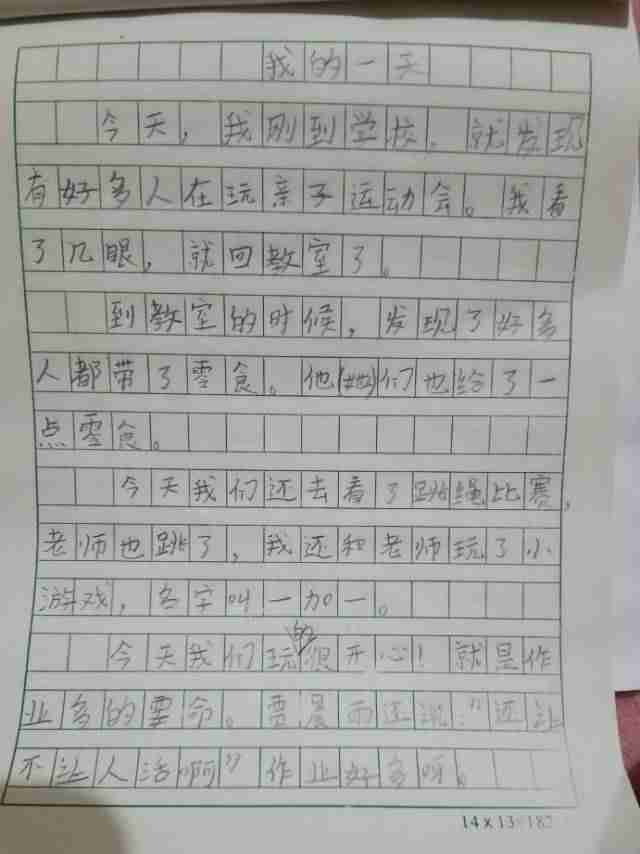 我的一天
今天，我刚到学校，就发现
有好多人在玩亲子运动会。我看
了几眼，就回教室了。
到教室的时候，发现了好多
人都带了零食。他(她)们也给了一
点零食。
今天我们还去看了跳绳比赛，
老师也跳了，我还和老师玩了小
游戏，名字叫一加一。
今天我们玩的很开心！就是作
业多的要命。贾晨雨还说："还让
不让人活啊"作业好多呀。
14×13=182